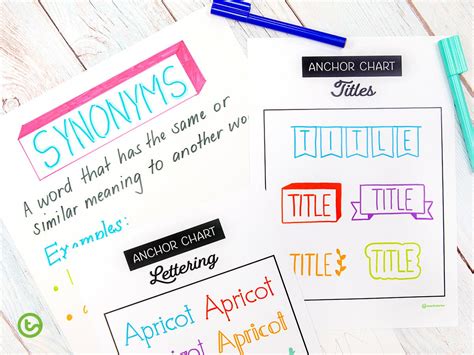 SYNONYMS
A word that has the same or
similar meaning to another
Examples:
ANCHOR CHART
Lettering
Apricot Apricot
Apricot
ANCHOR CHART
Titles
TITLE
TITLE TITLE
TITLE TITLE